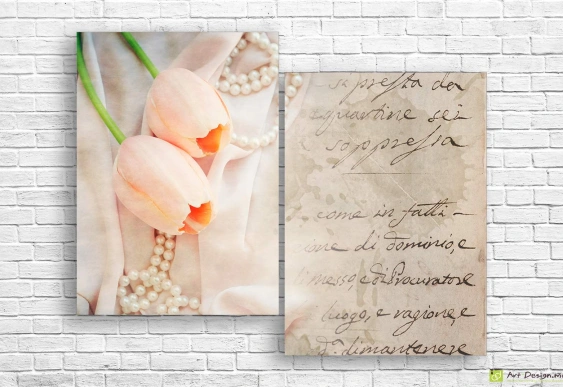 soppressa da
quartine sei
soppressa
come in fatti -
ione di dominio, e
messo, e di Procuratore
luogo, e ragione, e
di mantenere
Art Design.M